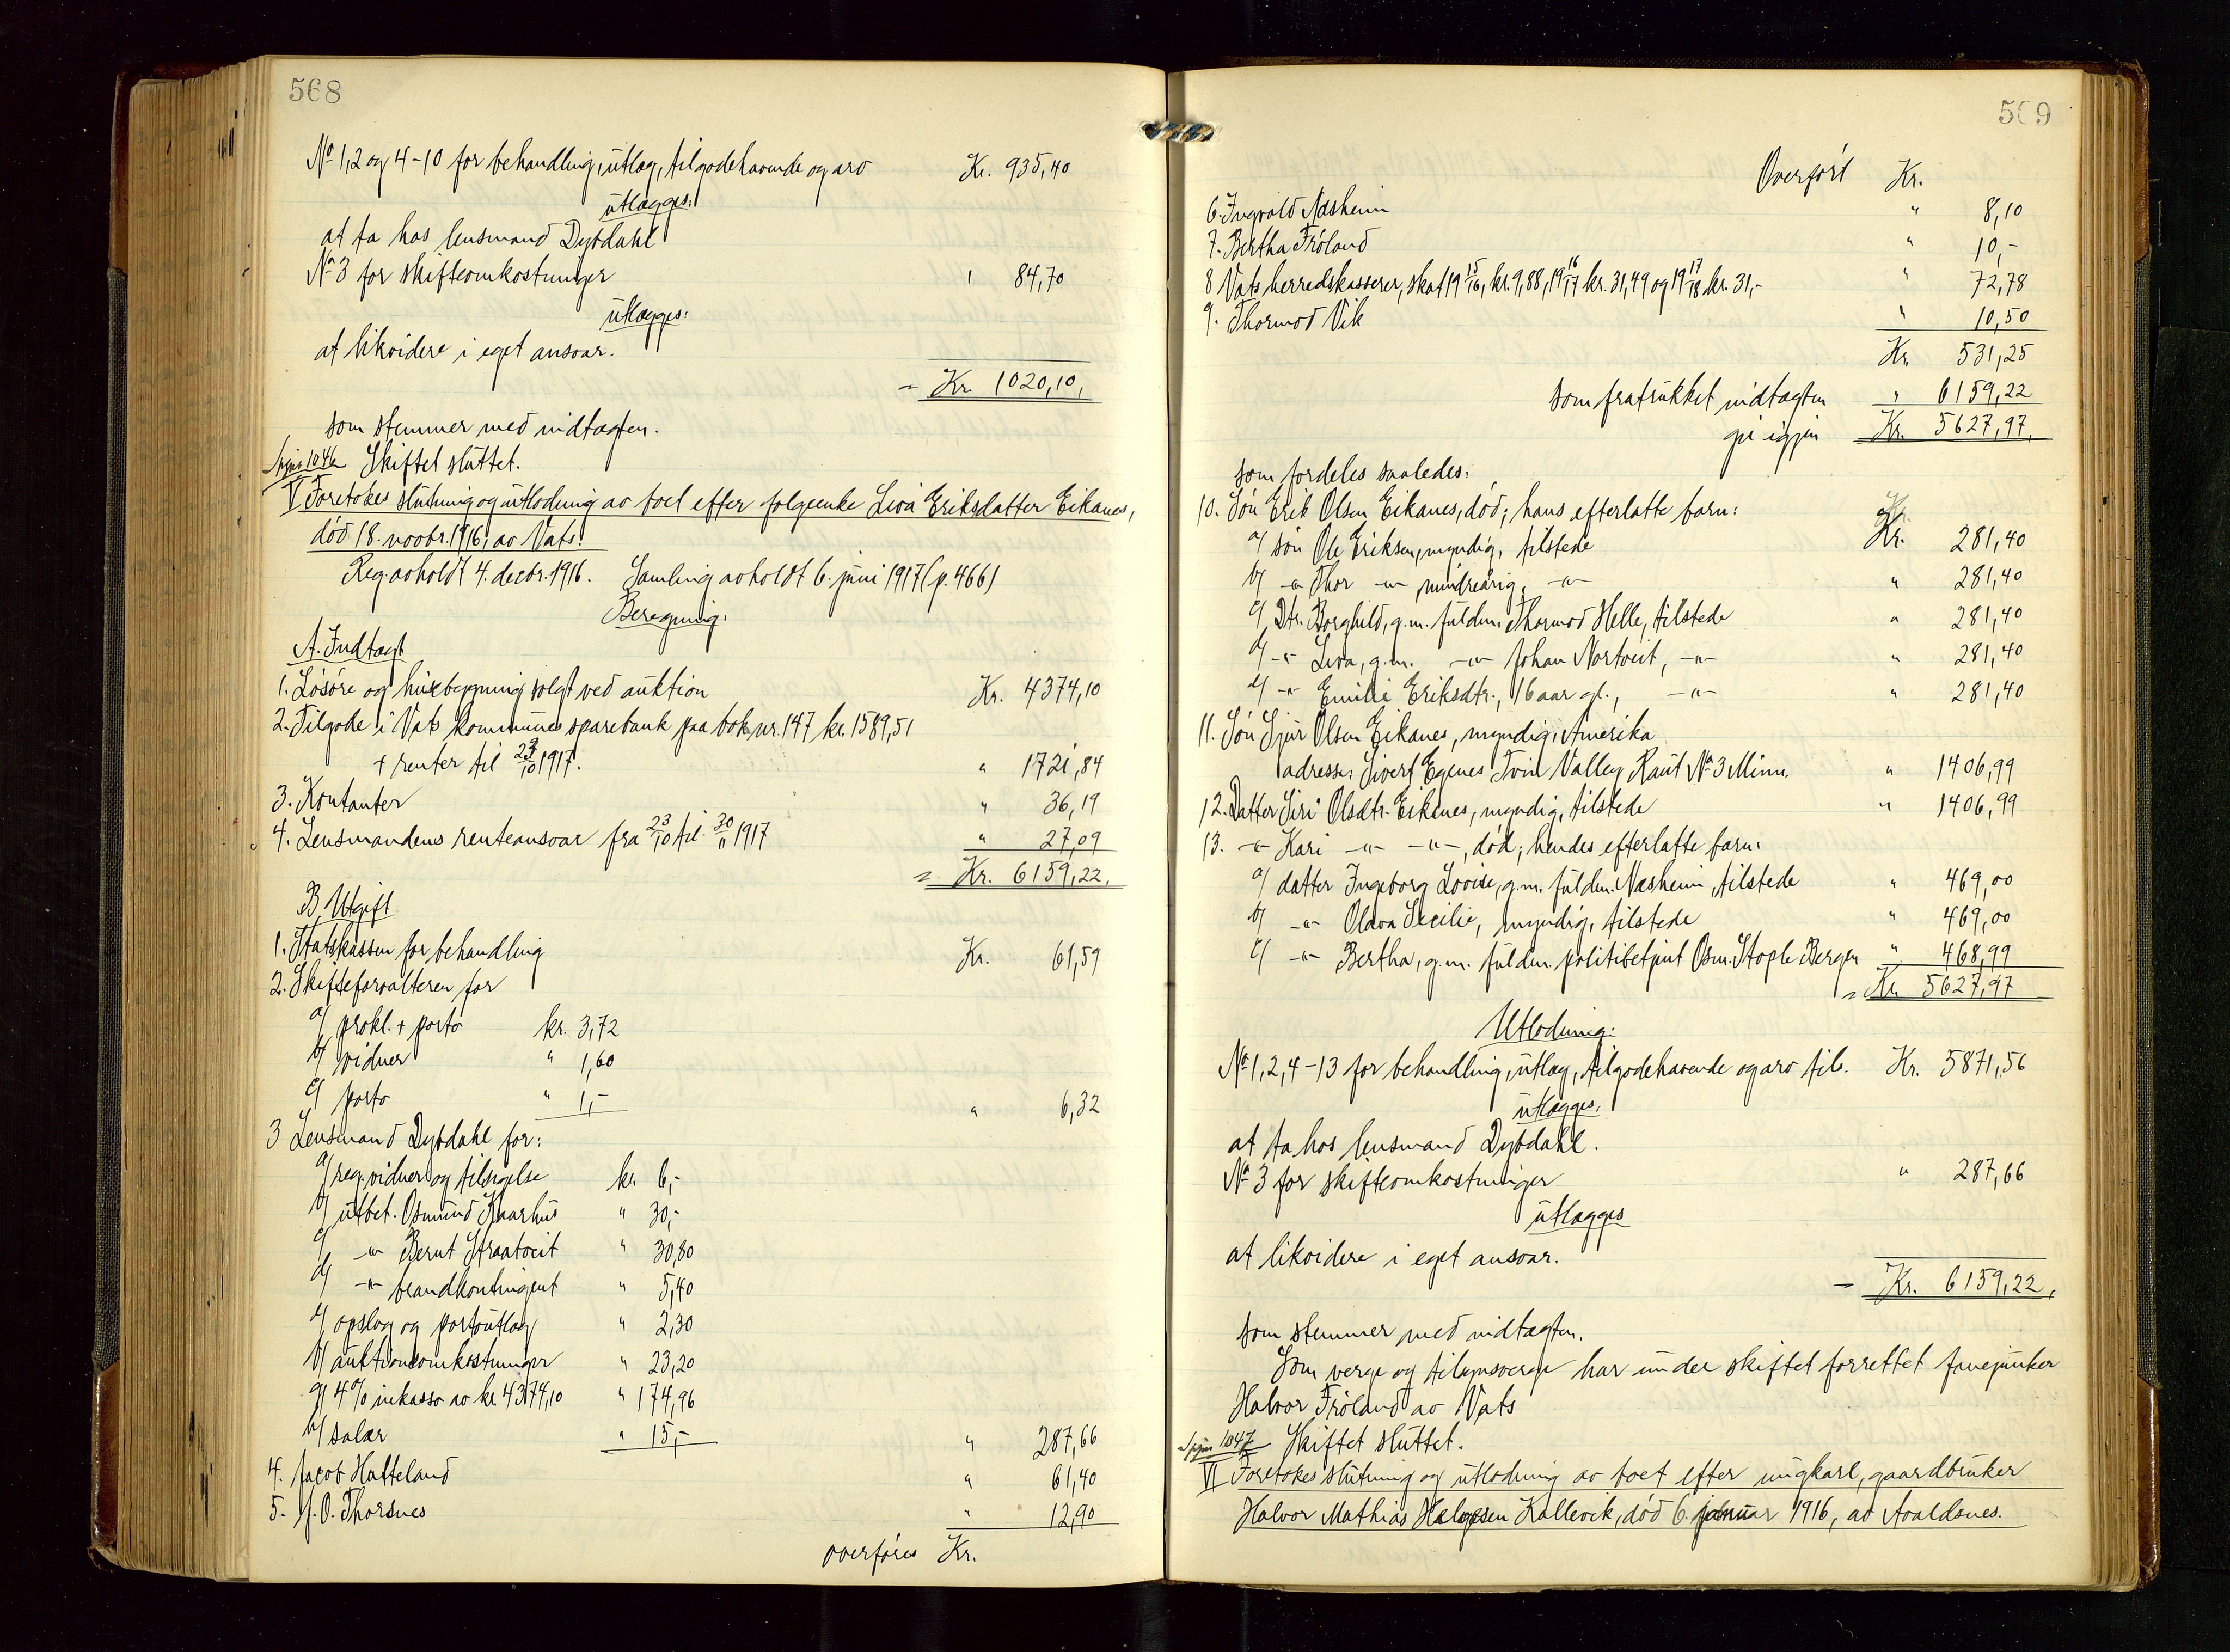 568
No 1, 2 og 4-10 for behandling, utlæg, tilgodehavende og arv Kr. 935,40
utlægges:
at ta hos lensmand Dybdahl
No 3 for skifteomkostninger " 84,70
utlægges:
at likvidere i eget ansvar.
= Kr. 1020,10,
som stemmer med indtægten.
1046 Skiftet sluttet.
V Foretokes slutning og utlodning av boet efter folgeenke Liva Eriksdatter Eikanes,
død 18. novbr. 1916, av Vats.
Reg. avholdt 4. decbr. 1916. Samling avholdt 6. juni 1917 (p. 466)
Beregning:
A. Indtægt
1. Løsøre og husbygning solgt ved auktion Kr. 4374,10
2. Tilgode i Vats kommunes sparebank paa bok nr. 147 kr. 1589,51
+ renter til 23/10 1917. " 1721,84
3. Kontanter " 36,19
4. Lensmandens renteansvar fra 23/10 til 30/11 1917 " 27,09
= Kr. 6159,22.
B. Utgift
1. Statskassen for behandling Kr. 61,59
2. Skifteforvalteren for
a/ prokl. + porto kr. 3,72
b/ vidner " 1,60
c/ porto " 1,- " 6,32
3 Lensmand Dybdahl for:
a/ reg. vidner og tilsigelse kr. 6,-
b/ utbet. Osmund Kaarhus " 30,-
c/ -"- Bernt Straatveit " 30,80
d/ -"- brandkontingent " 5,40
e/ opslag og portoutlæg " 2,30
f/ auktionsomkostninger " 23,20
g/ 4% inkasso av kr. 4374,10 " 174,96
h/ salær " 15,- " 287,66
4. Jacob Hatteland " 61,40
5. J. O. Thorsnes " 12,90
overføres Kr.
569
Overført Kr.
6. Ingvald Næsheim " 8,10
7. Bertha Frøland " 10,-
8 Vats herredskasserer, skat 19 15/16, kr. 9,88, 19 16/17 kr. 31,49 og 19 17/18 kr. 31,- " 72,78
9. Thormod Vik " 10,50
Kr. 531,25
som fratrukket indtægten " 6159,22
gir igjen Kr. 5627,97,
som fordeles saaledes:
10. Søn Erik Olsen Eikanes, død; hans efterlatte barn:
a/ søn Ole Eriksen, myndig, tilstede Kr. 281,40
b/ -"- Thor -"- mindreårig, -"- " 281,40
c/ Dtr. Borghild, g.m. fuldm. Thormod Helle, tilstede " 281,40
d/ -"- Liva, g.m. -"- Johan Nortveit, -"- " 281,40
e/ -"- Emilie Eriksdtr., 16 aar gl., -"- " 281,40
11. Søn Sjur Olsen Eikanes, myndig, Amerika
adresse: Sivert Egenes Tvin Valley Raut No 3 Minn. " 1406,99
12. Datter Siri Olsdtr. Eikanes, myndig, tilstede " 1406,99
13. -"- Kari -"- -"-, død; hendes efterlatte barn:
a/ datter Ingeborg Lovise, g.m. fuldm. Næsheim, tilstede " 469,00
b/ -"- Olava Secilie, myndig, tilstede " 469,00
c/ -"- Bertha, g.m. fuldm. politibetjent Osm. Stople Bergen " 468,99
= Kr. 5627,97
Utlodning:
No 1, 2, 4-13 for behandling, utlæg, tilgodehavende og arv tils. Kr. 5871,56
utlægges:
at ta hos lensmand Dybdahl.
No 3 for skifteomkostninger " 287,66
utlægges
at likvidere i eget ansvar.
= Kr. 6159,22,
som stemmer med indtægten.
Som verge og tilsynsverge har under skiftet forrettet fanejunker
Halvor Frøland av Vats
1047 Skiftet sluttet.
VI Foretokes slutning og utlodning av boet efter ungkarl, gaardbruker
Halvor Mathias Helgesen Kallevik, død 6. januar 1916, av Avaldsnes.